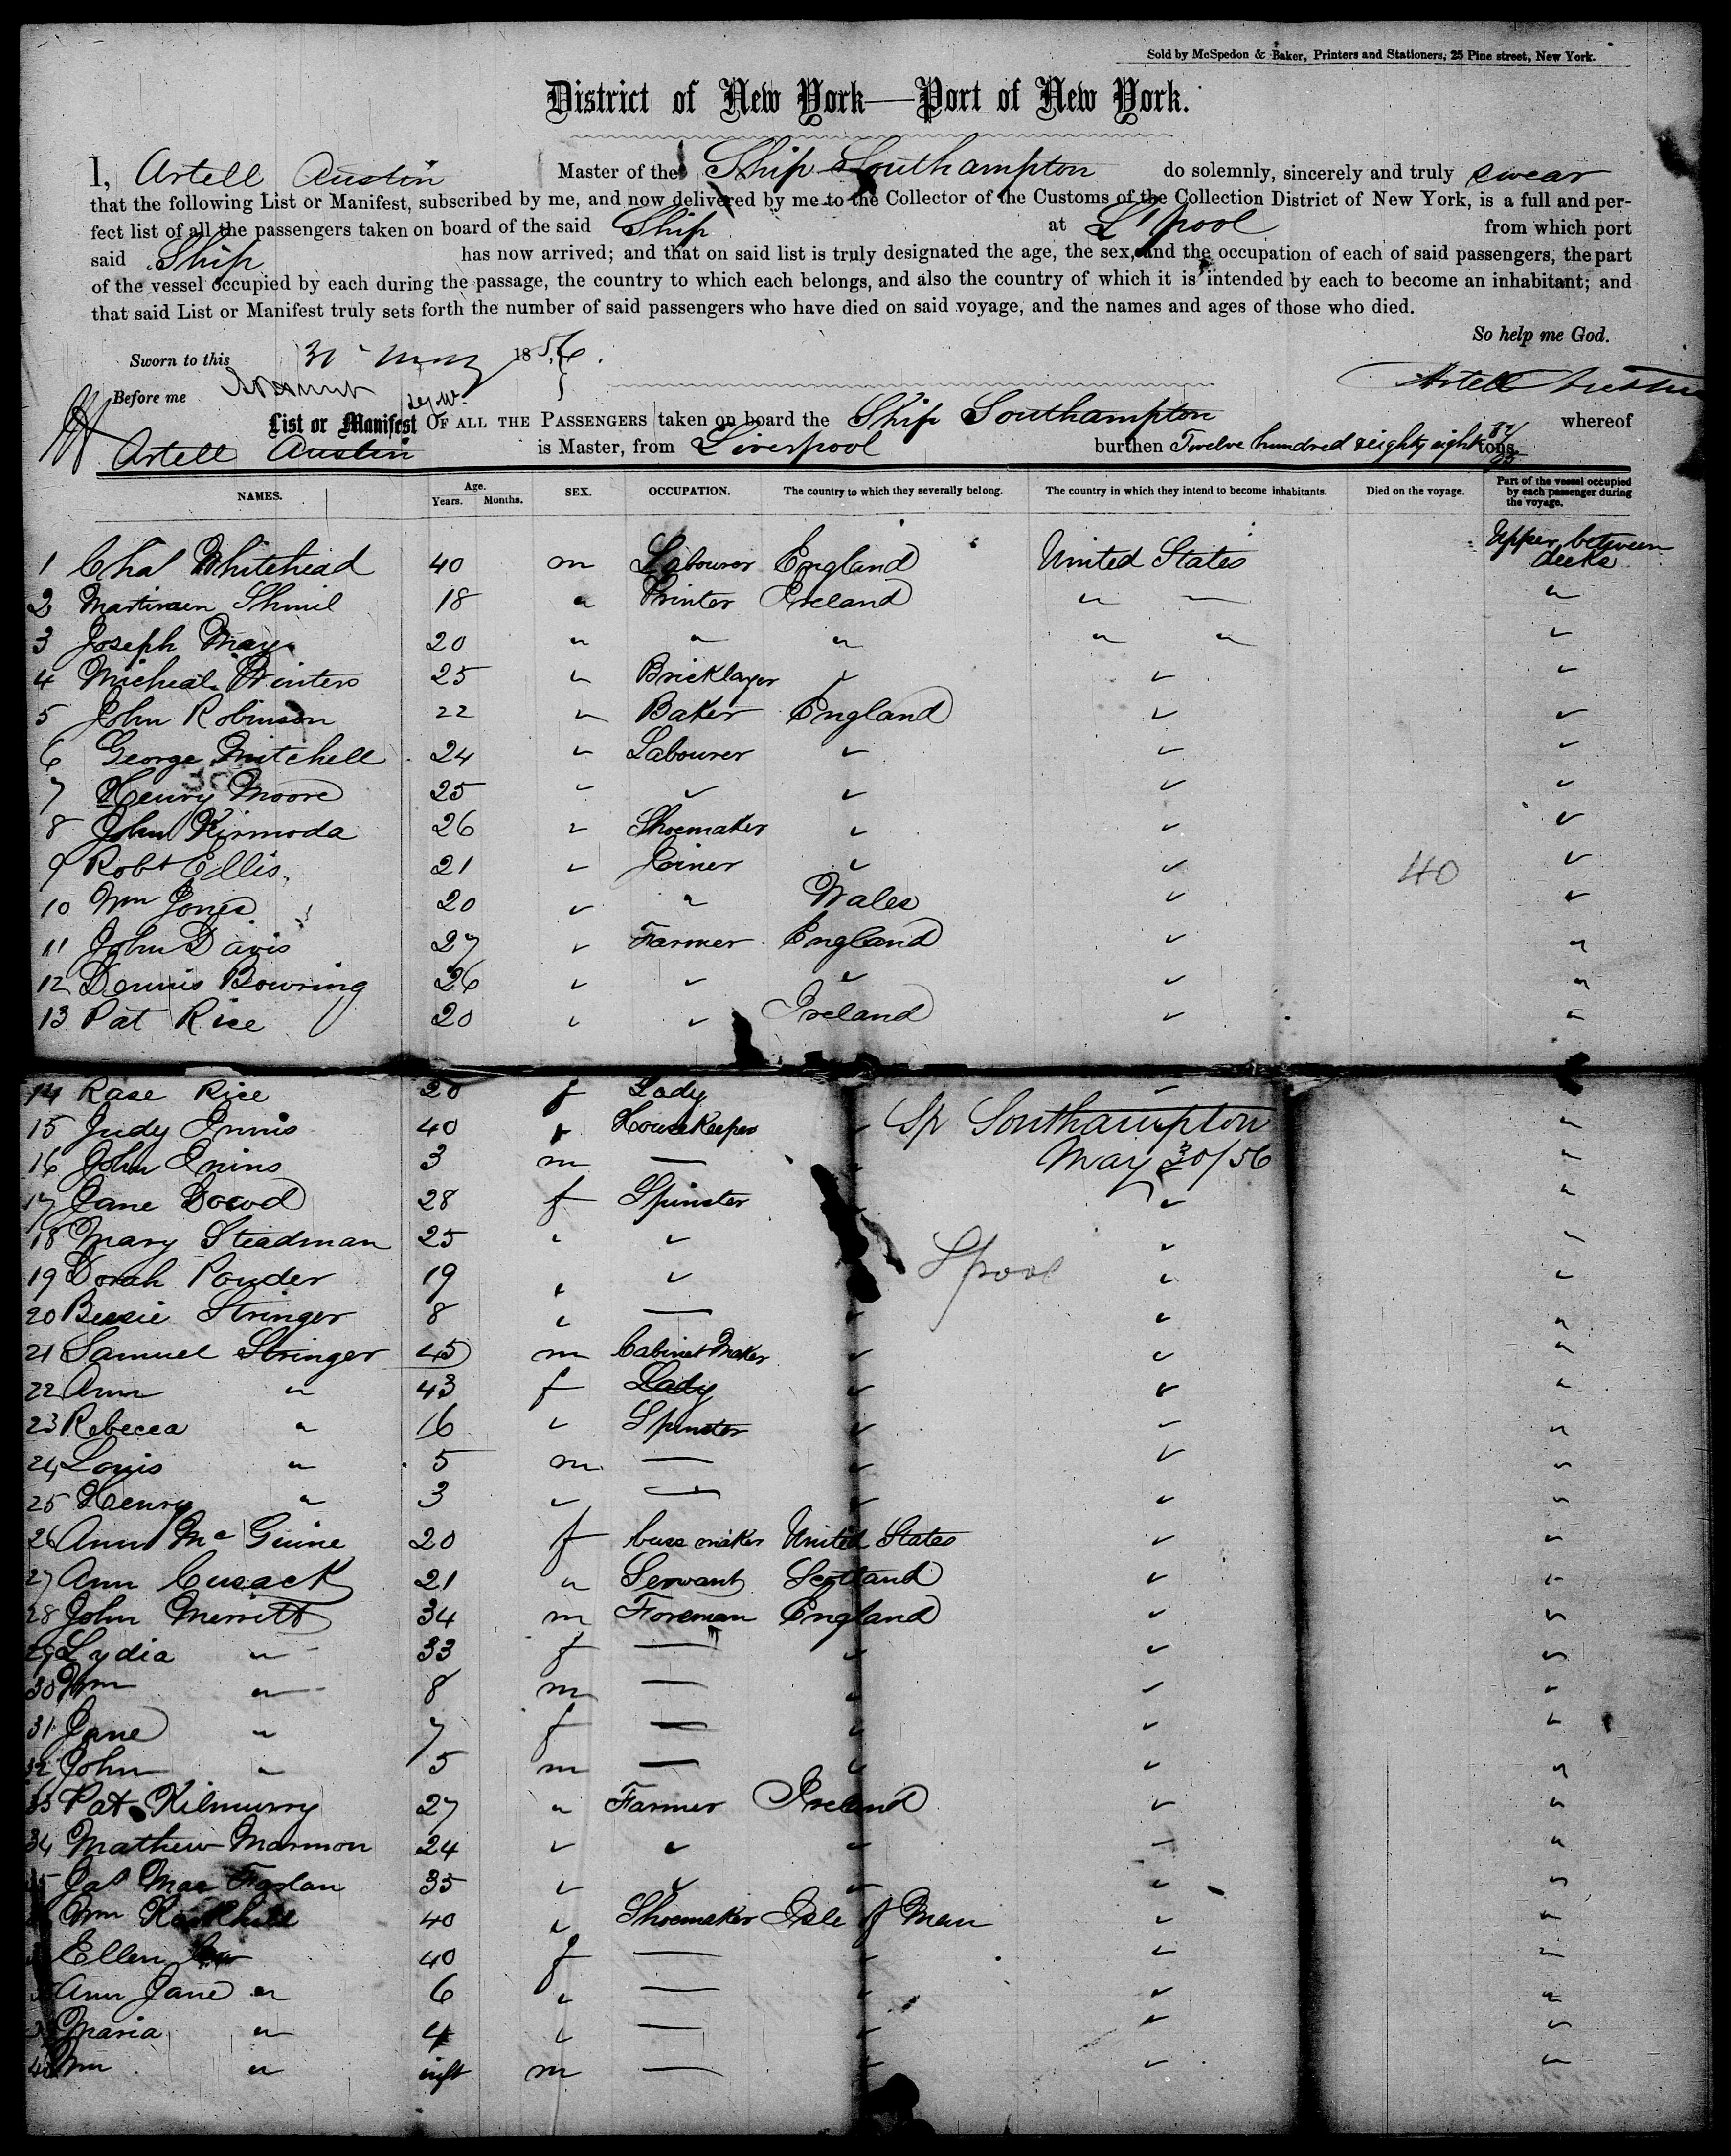 Sold by McSpedon & Baker, Printers and Stationers, 25 Pine street, New York.
District of New York—Port of New York.
I, Artell Austin Master of the Ship Southampton do solemnly, sincerely and truly swear
that the following List or Manifest, subscribed by me, and now delivered by me to the Collector of the Customs of the Collection District of New York, is a full and per-
fect list of all the passengers taken on board of the said Ship at L'pool from which port
said Ship has now arrived; and that on said list is truly designated the age, the sex, and the occupation of each of said passengers, the part
of the vessel occupied by each during the passage, the country to which each belongs, and also the country of which it is intended by each to become an inhabitant; and
that said List or Manifest truly sets forth the number of said passengers who have died on said voyage, and the names and ages of those who died.
So help me God.
Sworn to this 30 May 1856.
Artell Austin
Before me
List or Manifest OF ALL THE PASSENGERS taken on board the Ship Southampton whereof
Artell Austin is Master, from Liverpool burthen Twelve hundred & eighty eight tons
NAMES. Age. Years. Months. SEX. OCCUPATION. The country to which they severally belong. The country in which they intend to become inhabitants. Died on the voyage. Part of the vessel occupied by each passenger during the voyage.
1 Chas Whitehead 40 m Labourer England United States Upper between decks
2 Shmil 18 " Printer Ireland " "
3 Joseph May 20 " " " " " "
4 Micheal Winters 25 " Bricklayer " " "
5 John Robinson 22 " Baker England " "
6 George Mitchell 24 " Labourer " " "
7 Henry Moore 25 " " " " "
8 John Kirmoda 26 " Shoemaker " " "
9 Robt Ellis 21 " Joiner " " 40 "
10 Wm Jones 20 " " Wales " "
11 John Davis 27 " Farmer England " "
12 Dennis Bowring 26 " " " " "
13 Pat Rice 20 " " Ireland " "
14 Rase Rice 20 f Lady
15 Judy Innis 40 " Housekeeper " Sp Southampton "
16 John Innis 3 m — " May 30/56 "
17 Jane Dowd 28 f Spinster " " "
18 Mary Steadman 25 " " " "
19 Dorah Ponder 19 " " Lpool " "
20 Bessie Stringer 8 " — " " "
21 Samuel Stringer 45 m Cabinet Maker " " "
22 Ann " 43 f Lady " " "
23 Rebecca " 16 " Spinster " " "
24 Louis " 5 m — " " "
25 Henry " 3 " — " " "
26 Ann Mc Guine 20 f maker United States " "
27 Ann Cusack 21 " Servant Scotland " "
28 John Merritt 34 m Foreman England " "
29 Lydia " 33 f — " " "
30 Wm " 8 m — " " "
31 Jane " 7 f — " " "
32 John " 5 m — " " "
33 Pat Kilmurry 27 " Farmer Ireland " "
34 Mathew Marmon 24 " " " " "
35 Jas Mac Farlan 35 " " " " "
Wm 40 " Shoemaker Isle of Man " "
Ellen 40 f — " " "
Ann Jane " 6 " — " " "
Maria " 4 " — " " "
40 Wm " inft m — " " "